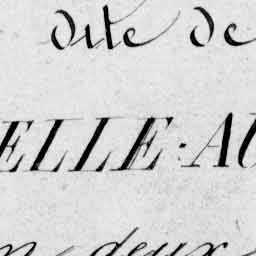 dite de
ELLE-AU
deux